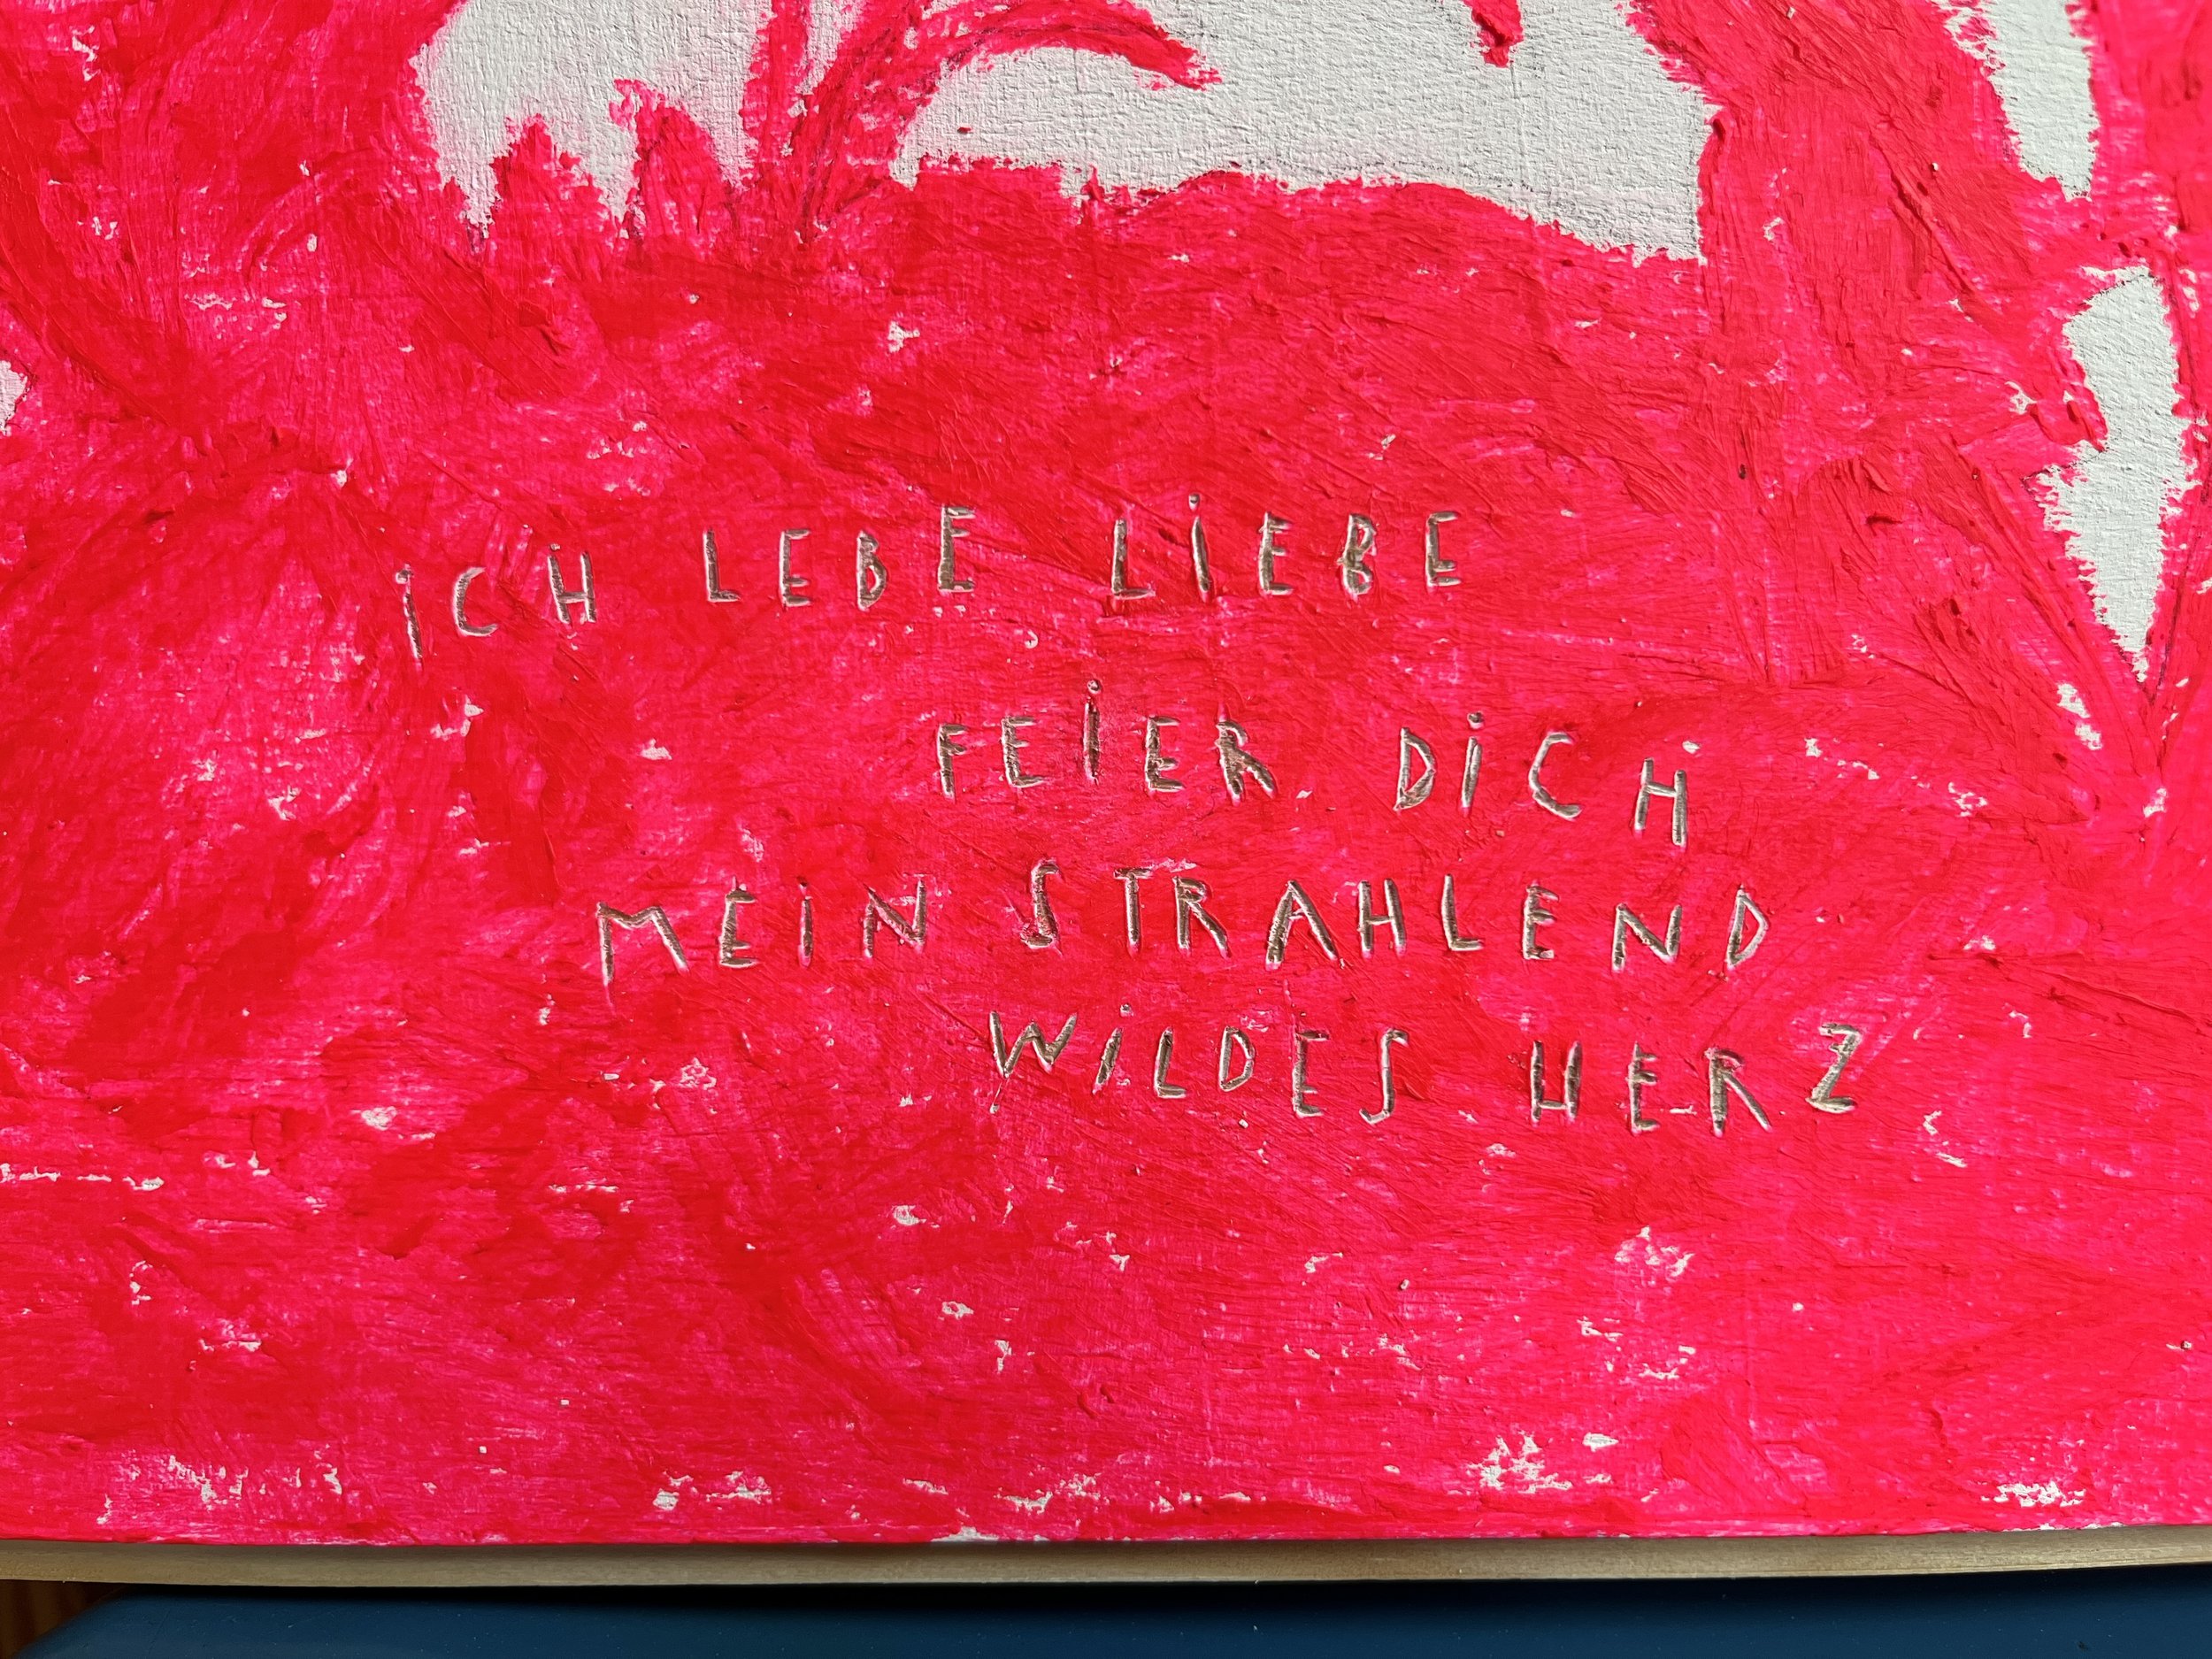 iCH LEBE LiEBE
FEiER DiCH
MEiN STRAHLEND
WiLDES HERZ